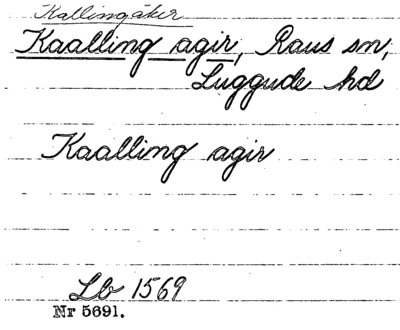 Kallingåker
Kaalling agir, Raus sn,
Luggude hd
Kaalling agir
Lb 1569
Nr 5691.